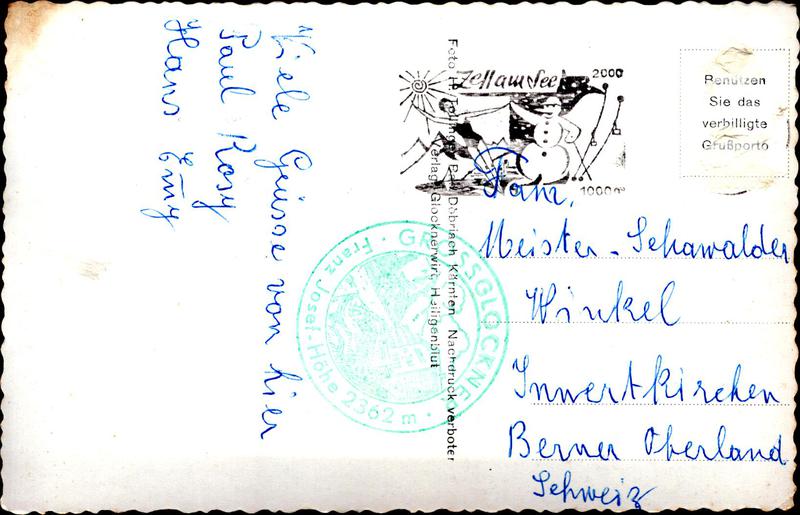 Viele Grüsse von hier
Paul Rosy
Hans Emy
Zell am See
2000
1000m
Benützen
Sie das
verbilligte
Grußporto
Fam.
Meister-Schawalder
Winkel
Innertkirchen
Berner Oberland
Schweiz
GROSSGLOCKNER
Franz Josef-Höhe 2362 m
Döbriach Kärnten Nachdruck verboten
Verlag Glocknerwirt, Heiligenblut